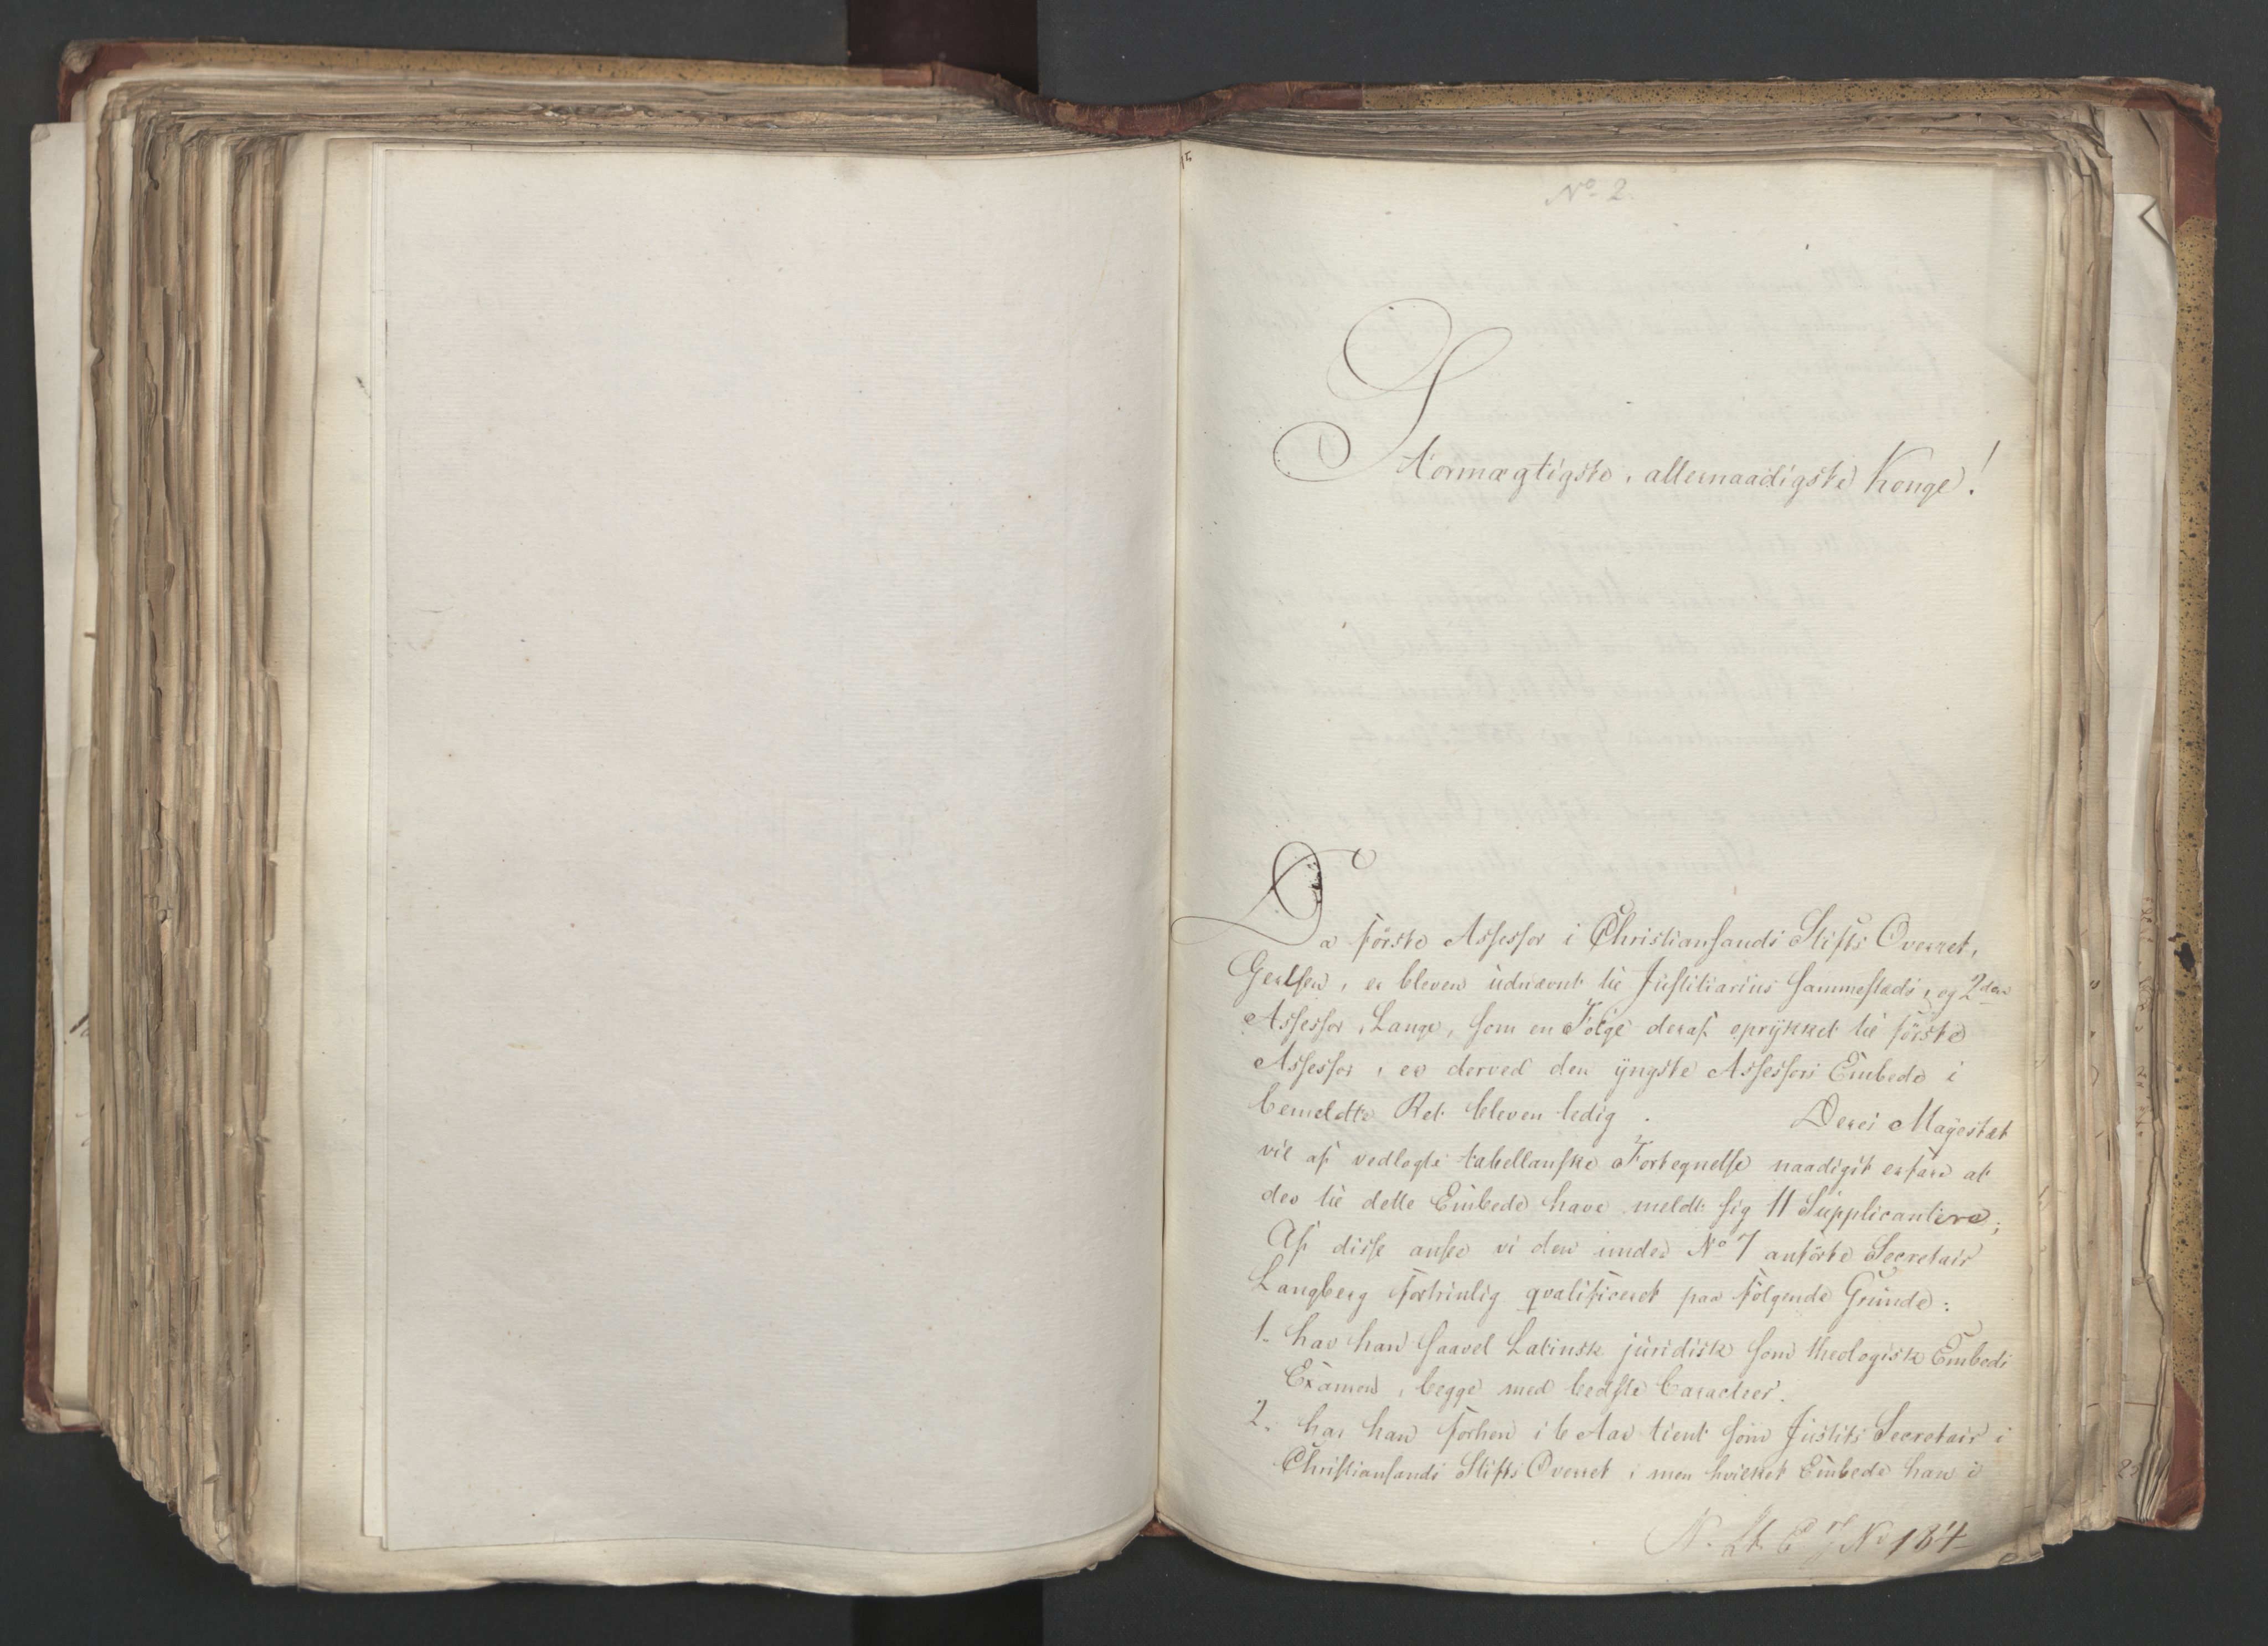 No 2.
Stormægtigste, allernaadigste Konge!
Da første Assessor i Christiansands Stifts Overret,
Gerlsen, er bleven udnævnt til Justitiarius sammesteds, og 2den
Assessor, Lange, som en Følge deraf oprykket til første
Assessor, er derved den yngste Assessors Embede i
bemeldte Ret bleven ledig. Deres Majestæt
vil af vedlagte tabellariske Fortegnelse naadigst erfare at
der til dette Embede have meldt sig 11 Supplicantere;
Af disse ansee vi den under No 7 anførte Secretair
Langberg fortrinlig qvalificeret paa følgende Grunde:
1. har han saavel Latinsk juridisk som theologisk Embeds
Examen, begge med bedste Caracteer.
2. har han forhen i 6 Aar tient som Justits Secretair i
Christiansands Stifts Overret, men hvilket Embede han i
No 184